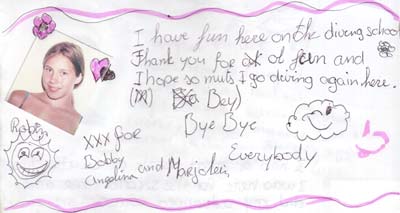 I have fun here on the diving school
Thank you for a lot of fun and
I hope so muts I go diving again here.
Bey)
Bye Bye
Robin
xxx for
Bobby
Angelina and Marjolein
Everybody